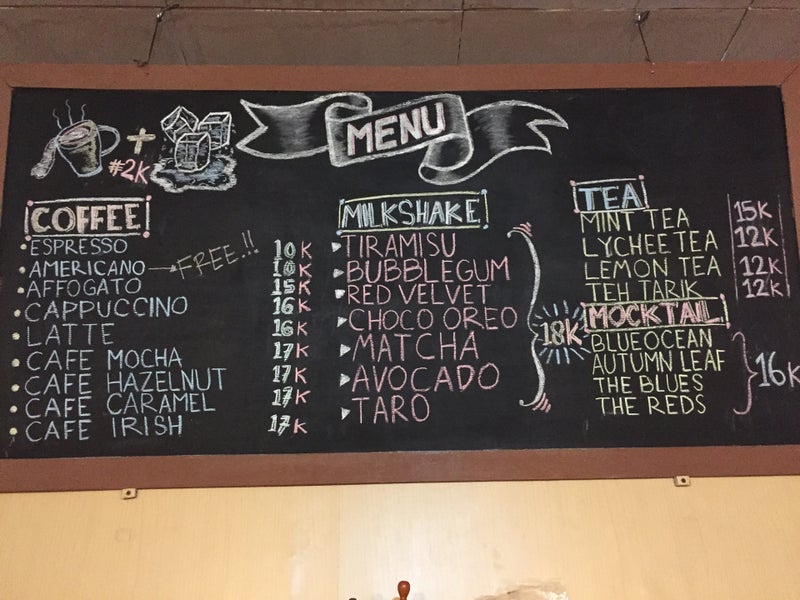 MENU
+
#2K
COFFEE
ESPRESSO 10K
AMERICANO → FREE!! 10K
AFFOGATO 15K
CAPPUCCINO 16K
LATTE 16K
CAFE MOCHA 17K
CAFE HAZELNUT 17K
CAFE CARAMEL 17K
CAFE IRISH 17K
MILKSHAKE
TIRAMISU
BUBBLEGUM
RED VELVET
CHOCO OREO
MATCHA
AVOCADO
TARO
18K
TEA
MINT TEA 15K
LYCHEE TEA 12K
LEMON TEA 12K
TEH TARIK 12K
MOCKTAIL
BLUE OCEAN
AUTUMN LEAF
THE BLUES
THE REDS
16K